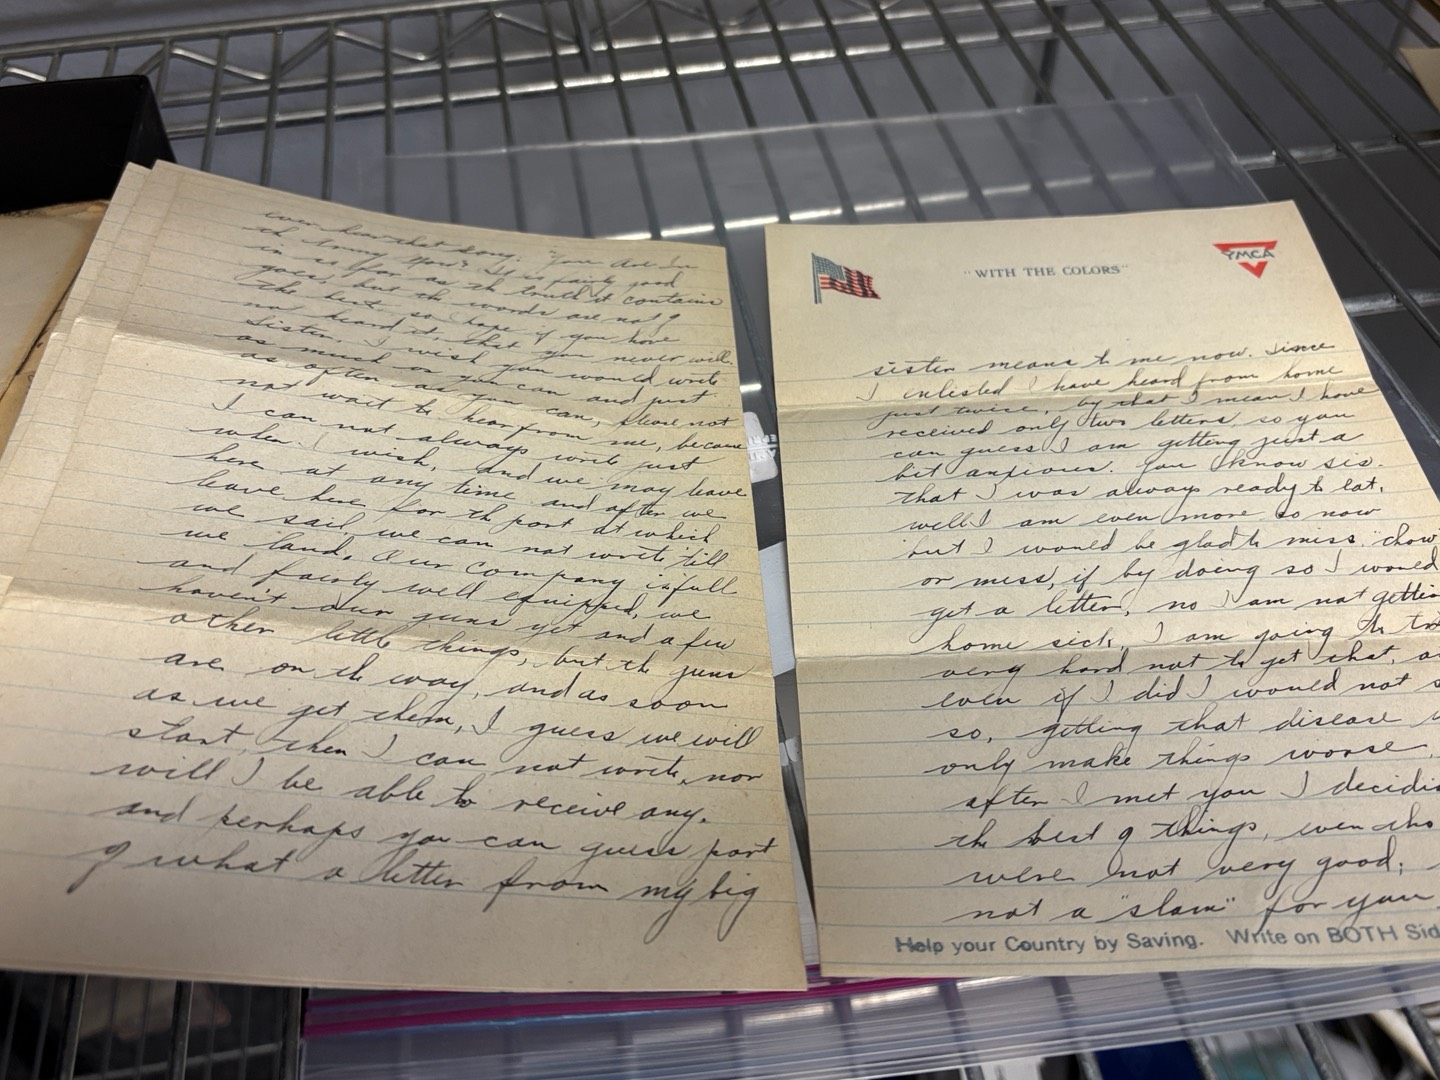 ever hear that song. "You Are In
th Army Now"? It is pretty good
in so far as the truth it contains
goes, but the words are not of
the best, so hope if you have
not heard it, that you never will.
Sister, I wish you would write
as much as you can and just
as often as you can, please not
not wait to hear from me, because
I can not always write just
when I wish, and we may leave
here at any time and after we
leave here for th port at which
we sail, we can not write till
we land. Our company is full
and fairly well equipped, we
haven't our guns yet and a few
other little things, but the guns
are on th way, and as soon
as we get them, I guess we will
start, then I can not write, nor
will I be able to receive any.
and perhaps you can guess part
of what a letter from my big
"WITH THE COLORS"
YMCA
sister means to me now. Since
I enlisted I have heard from home
just twice, by that I mean I have
received only two letters, so you
can guess I am getting just a
bit anxious. You know sis.
that I was always ready to eat,
well I am even more so now
but I would be glad to miss "chow"
or mess, if by doing so I would
get a letter, no I am not
home sick, I am going to
very hard not to get that,
even if I did I would not
so, getting that disease
only make things worse,
after I met you I
the best of things, even tho
were not very good;
not a "slam" for you
Help your Country by Saving. Write on BOTH